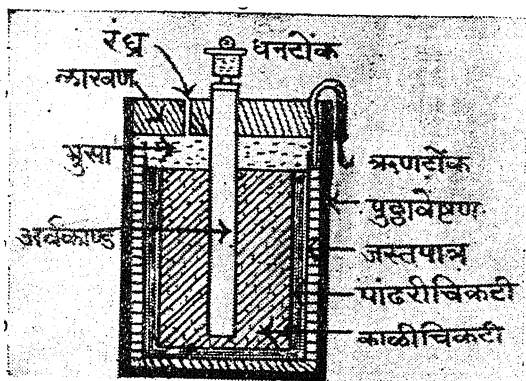 रंध्र
धनटोंक
लाखण
भुसा
ऋणटोंक
पुठ्ठावेष्टण
अर्वकाण्ड
जस्तपात्र
पांढरीचिकटी
काळीचिकटी